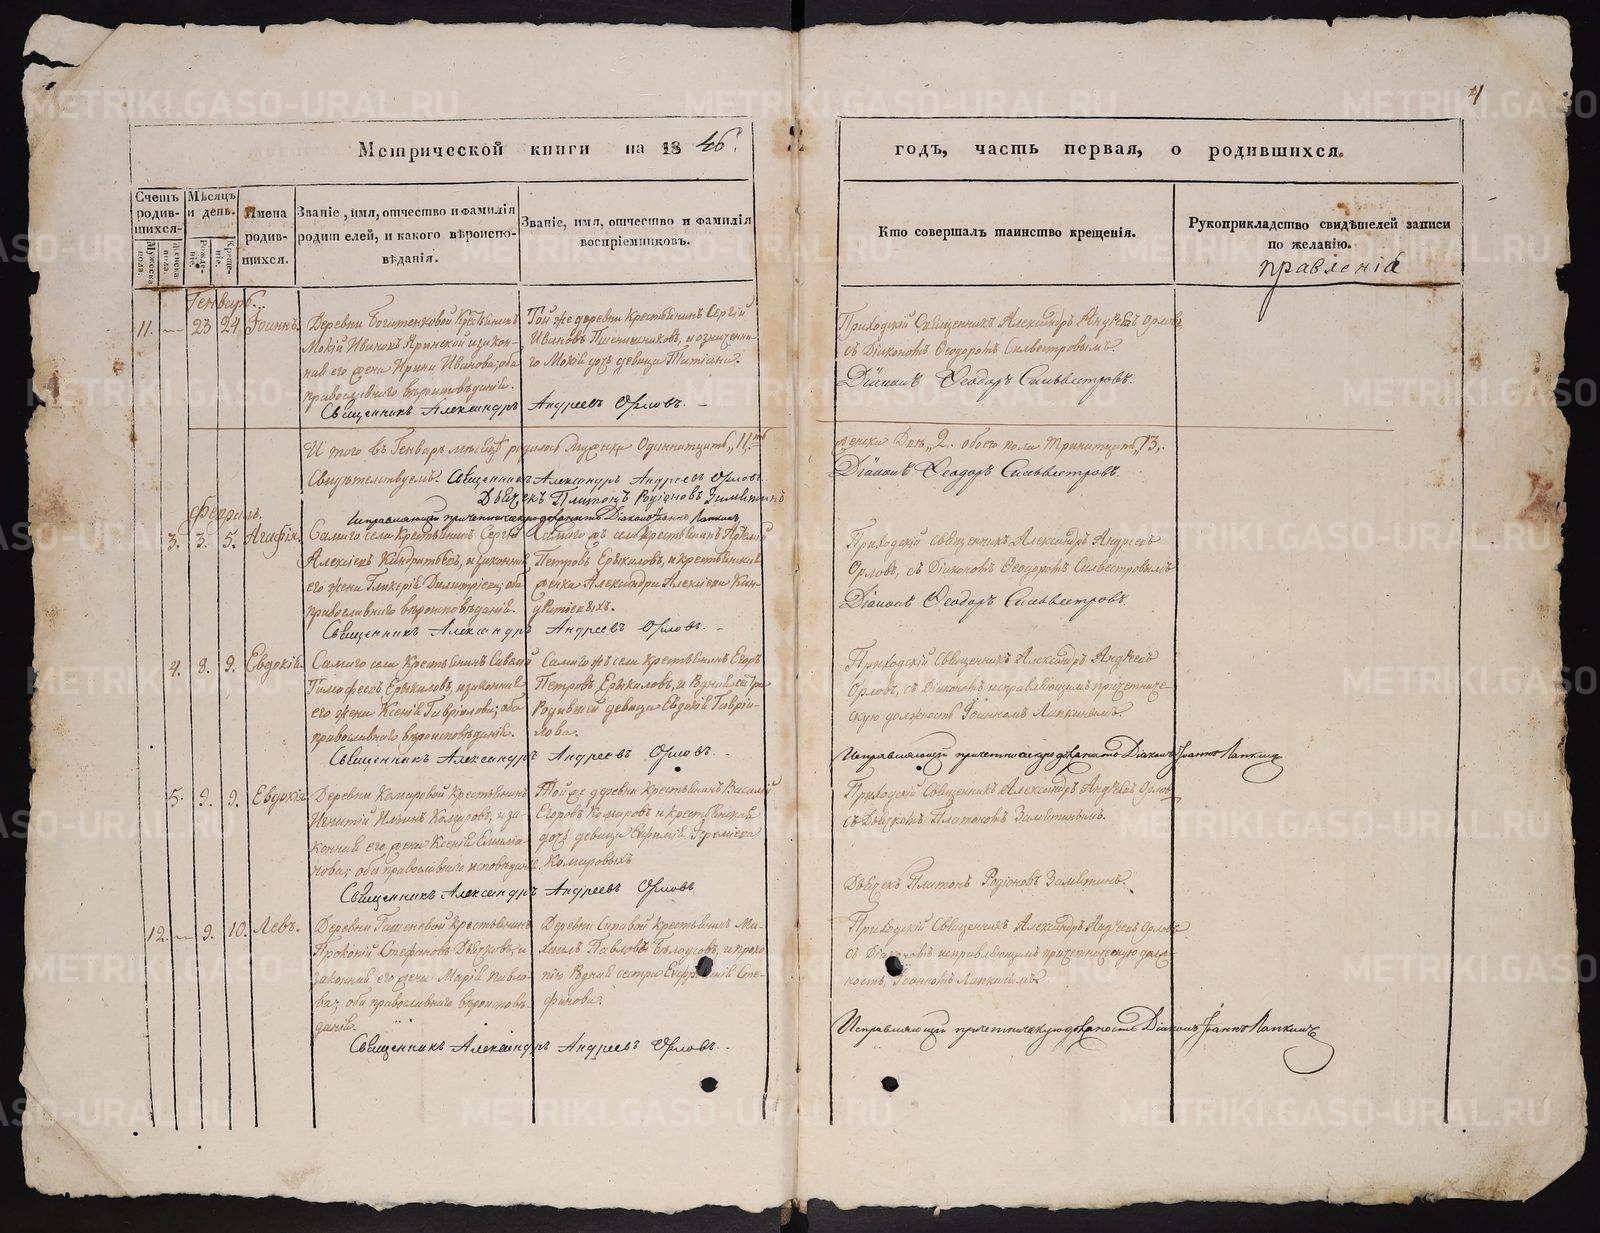 4
Метрической книги на 1846.
годъ, часть первая, о родившихся.
Счетъ родив-шихся.
Мѣсяцъ и день.
Имена родив-шихся.
Званіе, имя, отчество и фамилія родителей, и какого вѣроиспо-вѣданія.
Званіе, имя, отчество и фамилія воспріемниковъ.
Кто совершалъ таинство крещенія.
Рукоприкладство свидѣтелей записи по желанію.
Мужеска пола.
Женска пола.
Рожде-ніе.
Креще-ніе.
правленіе
Генварь.
11. — 23 24 Іоаннъ.
Деревни Крестьянинъ
Мокій Ивановъ и закон-
ная его жена Ирина Иванова; оба
православнаго вѣроисповѣданія.
Той же деревни Крестьянинъ Сергій
Ивановъ Пшенишниковъ, и означенна-
го Мокія дочь девица Татіана.
Приходскій Священникъ Александръ Андреевъ Орловъ,
съ Діакономъ Ѳеодоромъ Сильвестровымъ.
Діаконъ Ѳеодоръ Сильвестровъ.
Священникъ Александръ Андреевъ Орловъ. —
И того въ Генварѣ мѣсяцѣ родилось Мужска Одиннатцать „11„
женска Двѣ „2„ обоего пола Тринатцать „13„.
Свидѣтельствуемъ: Священникъ Александръ Андреевъ Орловъ.
Діаконъ Ѳеодоръ Сильвестровъ.
Дьячекъ Платонъ Родіоновъ Замятинъ
Исправляющій причетническую должность Діаконъ Іоаннъ Лапкинъ
Февраль.
3. 3. 5. Агафія.
Самаго села Крестьянинъ Сергѣй
Алексѣевъ Кондратьевъ, и законная
его жена Гликерія Димитріева; оба
православнаго вѣроисповѣданія.
Самаго жъ села Крестьянинъ
Петровъ и крестьянская
женка Александра Алексіева Кон-
дратіевыхъ.
Приходскій Священникъ Александръ Андреевъ
Орловъ, съ Діакономъ Ѳеодоромъ Силвестровымъ
Діаконъ Ѳеодоръ Сильвестровъ.
Священникъ Александръ Андреевъ Орловъ. —
4. 8. 9. Евдокія.
Самаго села Крестьянинъ
Тимофеевъ и законная
его жена Ксенія Гавріилова; оба
православнаго вѣроисповѣданія.
Самаго жъ села Крестьянинъ Егоръ
Петровъ и родная сестра
Родившей девица Евдокія Гавріи-
лова.
Приходскій Священникъ Александръ Андреевъ
Орловъ, съ Діакономъ исправляющимъ причетниче-
скую должность Іоанномъ Лапкинымъ.
Священникъ Александръ Андреевъ Орловъ. —
Исправляющій причетническую должность Діаконъ Іоаннъ Лапкинъ
5. 9. 9. Евдокія
Деревни Комаровой Крестьянинъ
Игнатій Ильинъ Комаровъ, и за-
конная его жена Ксенія Емиліа-
нова; оба православнаго исповѣданія.
Той же деревни Крестьянинъ Василій
Егоровъ Комаровъ и крестьянская
дочь девица
Комаровыхъ
Приходскій Священникъ Александръ Андреевъ Орловъ
съ Дьячкомъ Платономъ Замятинымъ.
Дьячекъ Платонъ Родіоновъ Замятинъ.
Священникъ Александръ Андреевъ Орловъ
12. — 9. 10. Левъ.
Деревни Крестьянинъ
Прокопій Стефановъ и
законная его жена Марія Павло-
ва; оба православнаго вѣроисповѣ-
данія.
Деревни Крестьянинъ Ми-
хаилъ Павловъ Бѣлоусовъ, и
родная сестра Сте-
фанова.
Приходскій Священникъ Александръ Андреевъ Орловъ
съ Діакономъ исправляющимъ причетническую долж-
ность, Іоанномъ Лапкинымъ.
Исправляющій причетническую должность Діаконъ Іоаннъ Лапкинъ
Священникъ Александръ Андреевъ Орловъ. —
METRIKI.GASO-URAL.RU